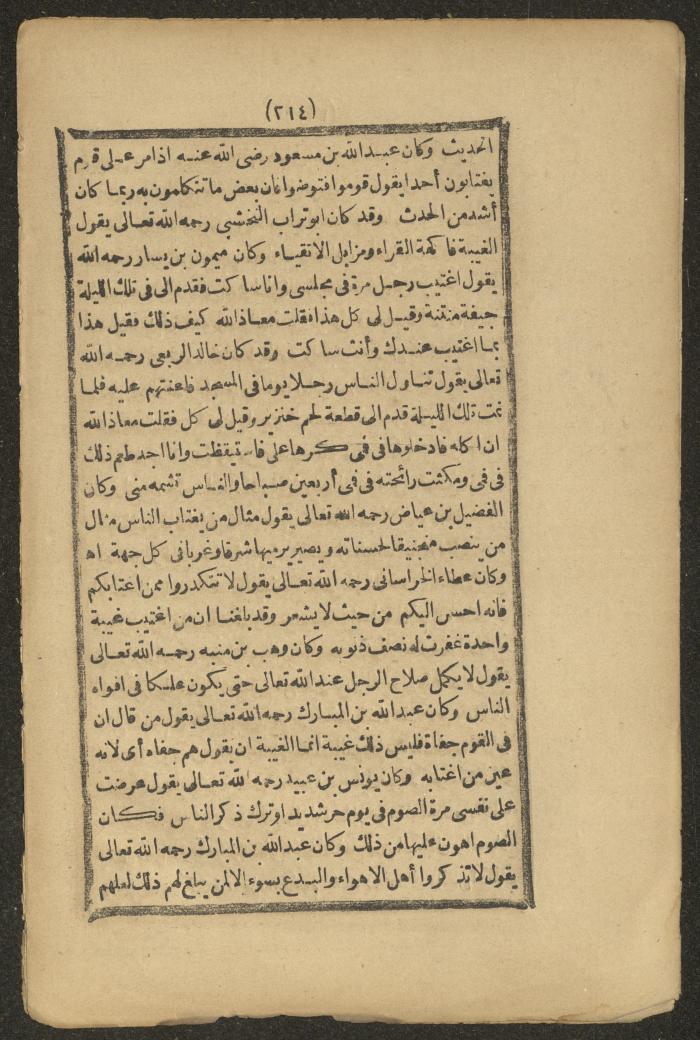 (٢١٤)
الحديث وكان عبد الله بن مسعود رضى الله عنه اذا مر على قوم
يغتابون أحدا يقول قوموا فتوضوا فان بعض ما تتكلمون به ربما كان
أشد من الحدث وقد كان ابو تراب النخشبي رحمه الله تعالى يقول
الغيبة فاكهة القراء ومزابل الاتقياء وكان ميمون بن يسار رحمه الله
يقول اغتيب رجل مرة في مجلسى وانا ساكت فقدم الى فى تلك الليلة
جيفة منتنة وقيل لى كل هذا فقلت معاذ الله كيف ذلك فقيل هذا
بما اغتيب عندك وأنت ساكت وقد كان خالد الربعى رحمه الله
تعالى يقول تناول الناس رجلا يوما فى المسجد فاعنتهم عليه فلما
نمت تلك الليلة قدم الى قطعة لحم خنزير وقيل لى كل فقلت معاذ الله
ان اكله فادخلوها فى فى كرها على فاستيقظت وانا اجد طعم ذلك
فى فى ومكثت رائحته فى فى أربعين صباحا والناس تشمه منى وكان
الفضيل بن عياض رحمه الله تعالى يقول مثال من يغتاب الناس مثال
من ينصب منجنيقا لحسناته ويصير يرميها شرقا وغربا فى كل جهة اه
وكان عطاء الخراسانى رحمه الله تعالى يقول لا تتكدروا ممن اغتابكم
فانه احسن اليكم من حيث لا يشعر وقد بلغنا ان من اغتيب غيبة
واحدة غفرت له نصف ذنوبه وكان وهب بن منبه رحمه الله تعالى
يقول لا يكمل صلاح الرجل عند الله تعالى حتى يكون علكا فى افواه
الناس وكان عبد الله بن المبارك رحمه الله تعالى يقول من قال ان
فى القوم جفاة فليس ذلك غيبة انما الغيبة ان يقول هم جفاه أى لانه
عين من اغتابه وكان يونس بن عبيد رحمه الله تعالى يقول عرضت
على نفسى مرة الصوم فى يوم حر شديد او ترك ذكر الناس فكان
الصوم اهون عليها من ذلك وكان عبد الله بن المبارك رحمه الله تعالى
يقول لا تذكروا أهل الاهواء والبدع بسوء الا لمن يبلغ لهم ذلك لعلهم